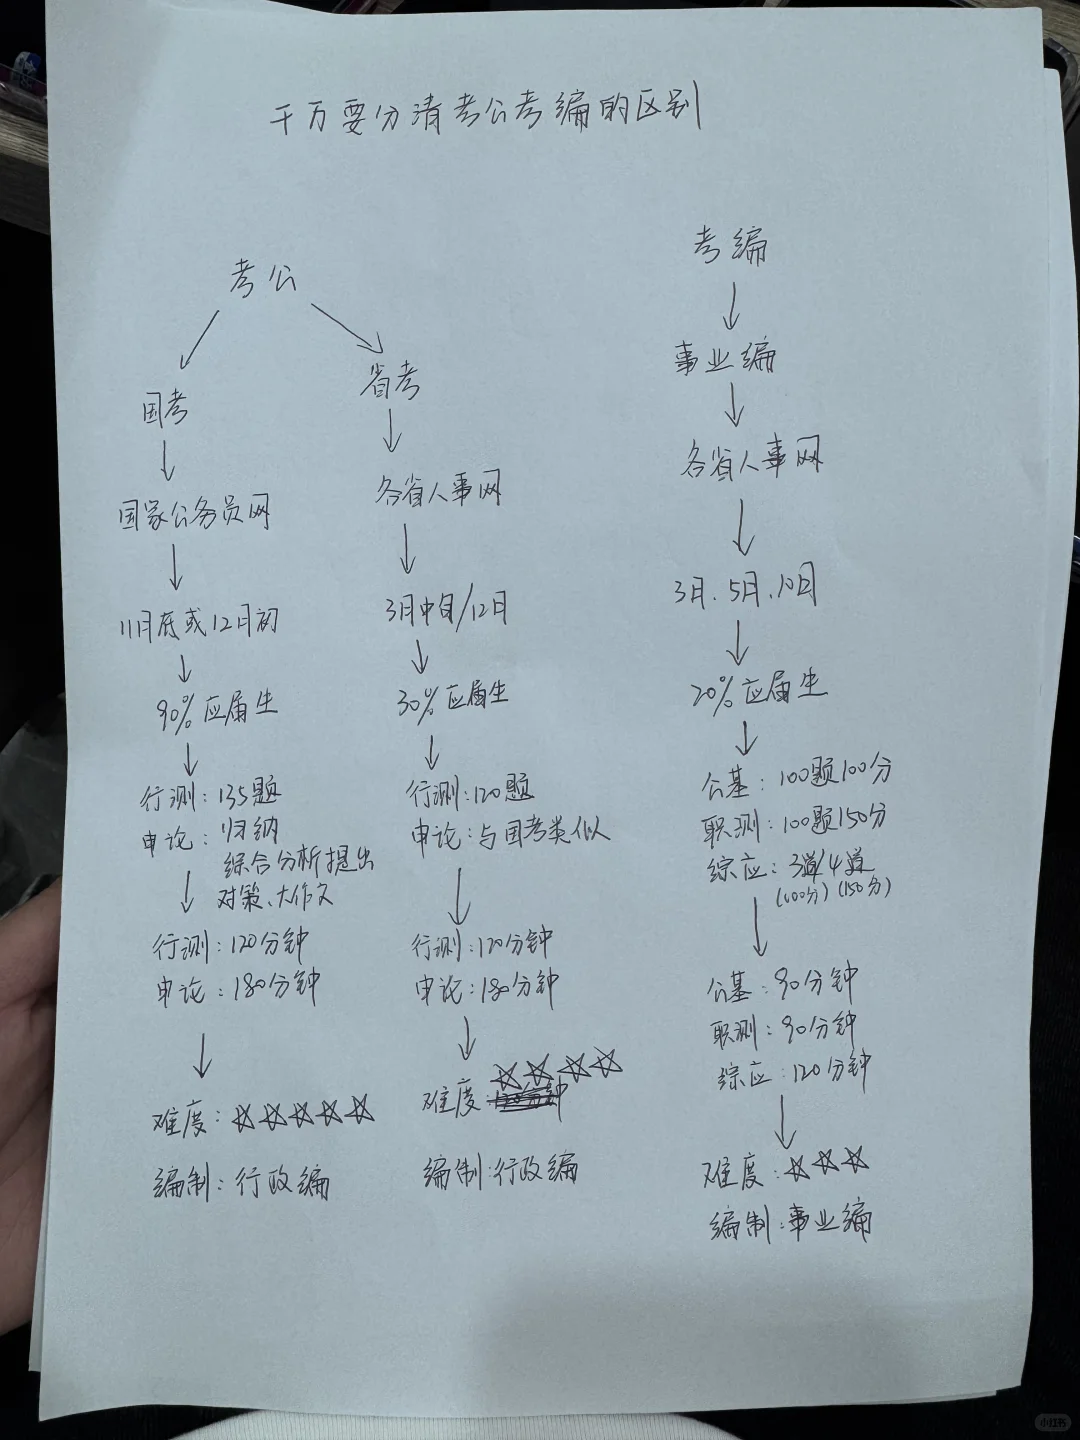 千万要分清考公考编的区别
考公
国考
国家公务员网
11月底或12月初
90%应届生
行测:135题
申论:归纳
综合分析提出
对策、大作文
行测:120分钟
申论:180分钟
难度:☆☆☆☆☆
编制:行政编
省考
各省人事网
3月中旬/12月
30%应届生
行测:120题
申论:与国考类似
行测:120分钟
申论:180分钟
难度:☆☆☆☆
编制:行政编
考编
事业编
各省人事网
3月、5月、10月
20%应届生
公基:100题100分
职测:100题150分
综应:3道/4道
(100分)(150分)
公基:90分钟
职测:90分钟
综应:120分钟
难度:☆☆☆
编制:事业编
小红书